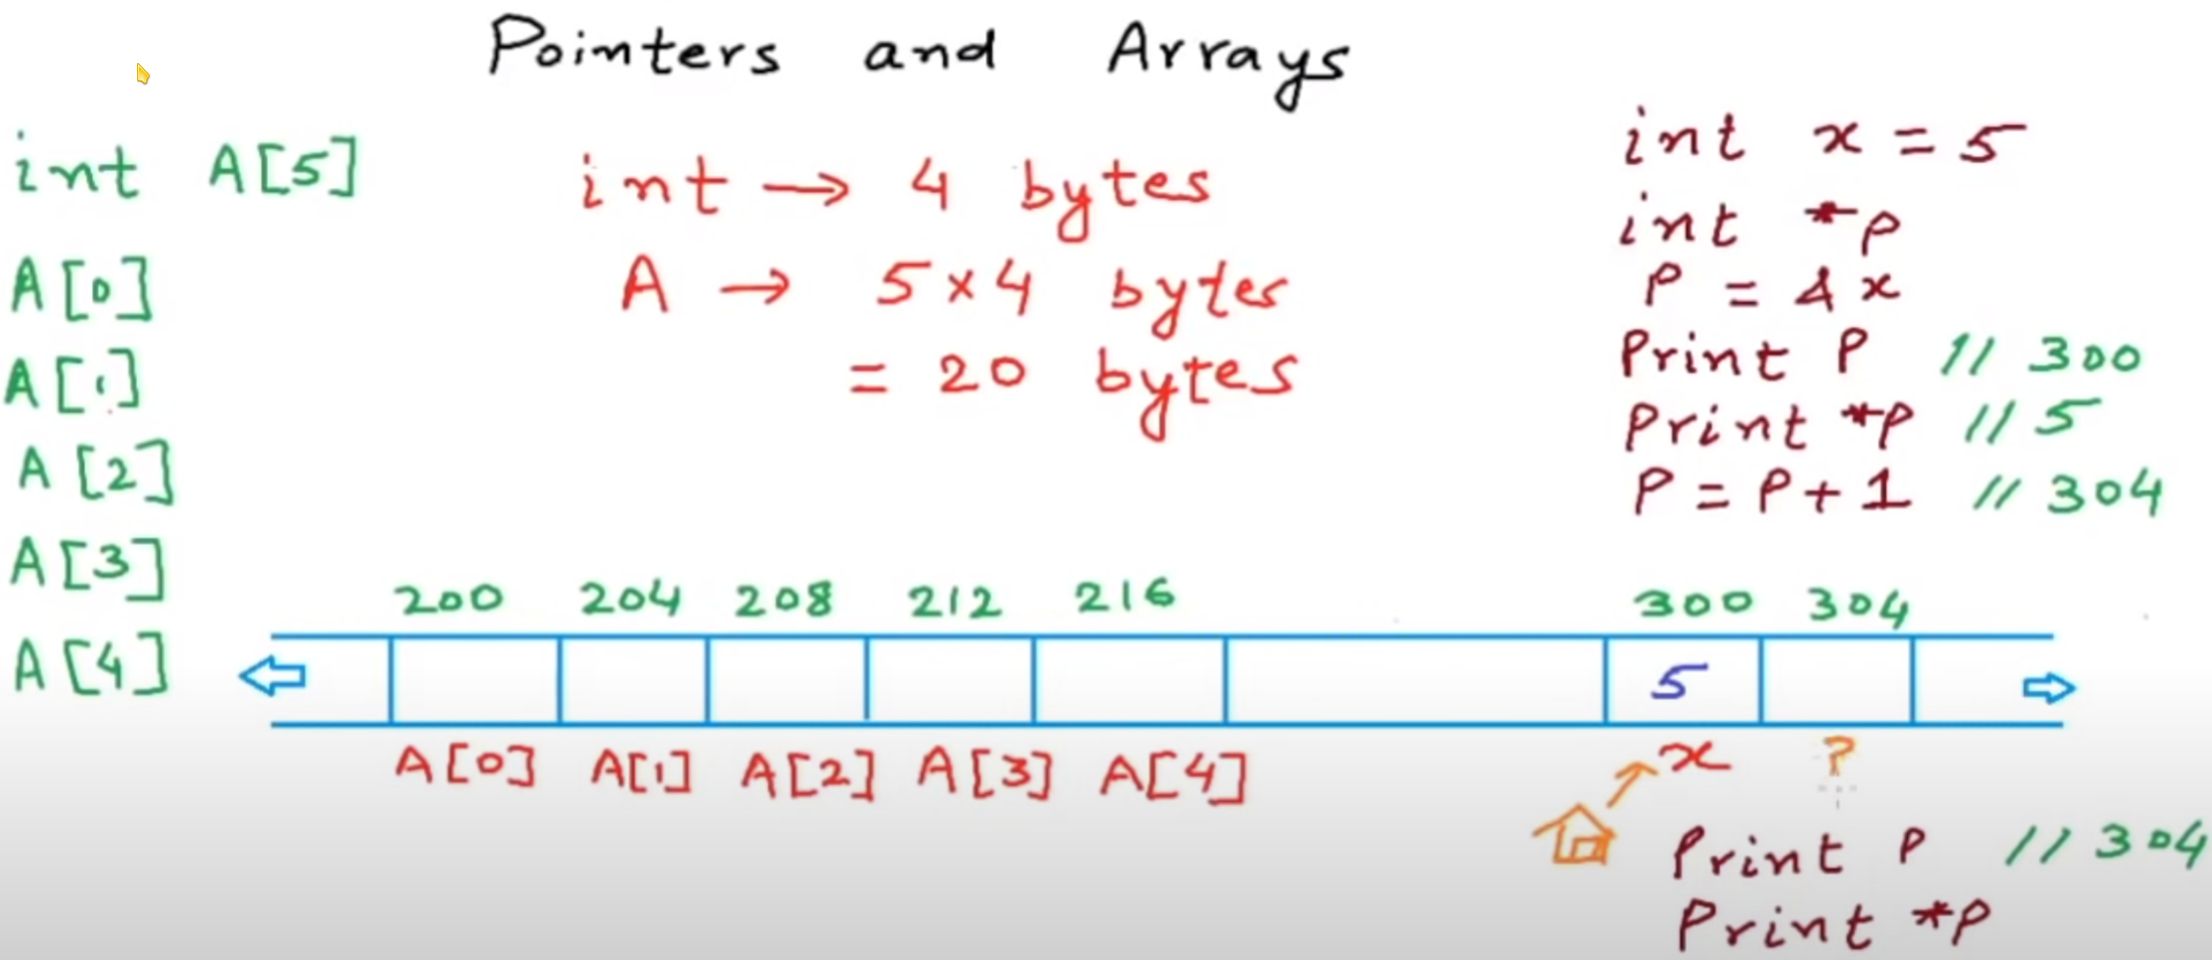 Pointers and Arrays
int A[5]
A[0]
A[1]
A[2]
A[3]
A[4]
int → 4 bytes
A → 5×4 bytes
= 20 bytes
int x = 5
int *p
P = &x
Print P // 300
Print *p // 5
P = P + 1 // 304
200 204 208 212 216 300 304
5
A[0] A[1] A[2] A[3] A[4] x ?
Print P // 304
Print *p